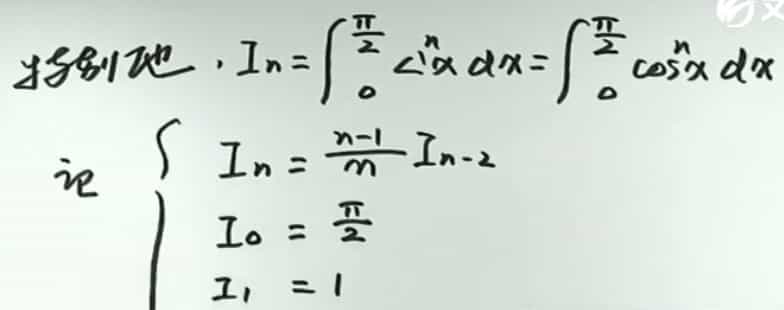 特别地，Iₙ = ∫₀^(π/2) sinⁿx dx = ∫₀^(π/2) cosⁿx dx
记 { Iₙ = (n-1)/n Iₙ₋₂
I₀ = π/2
I₁ = 1